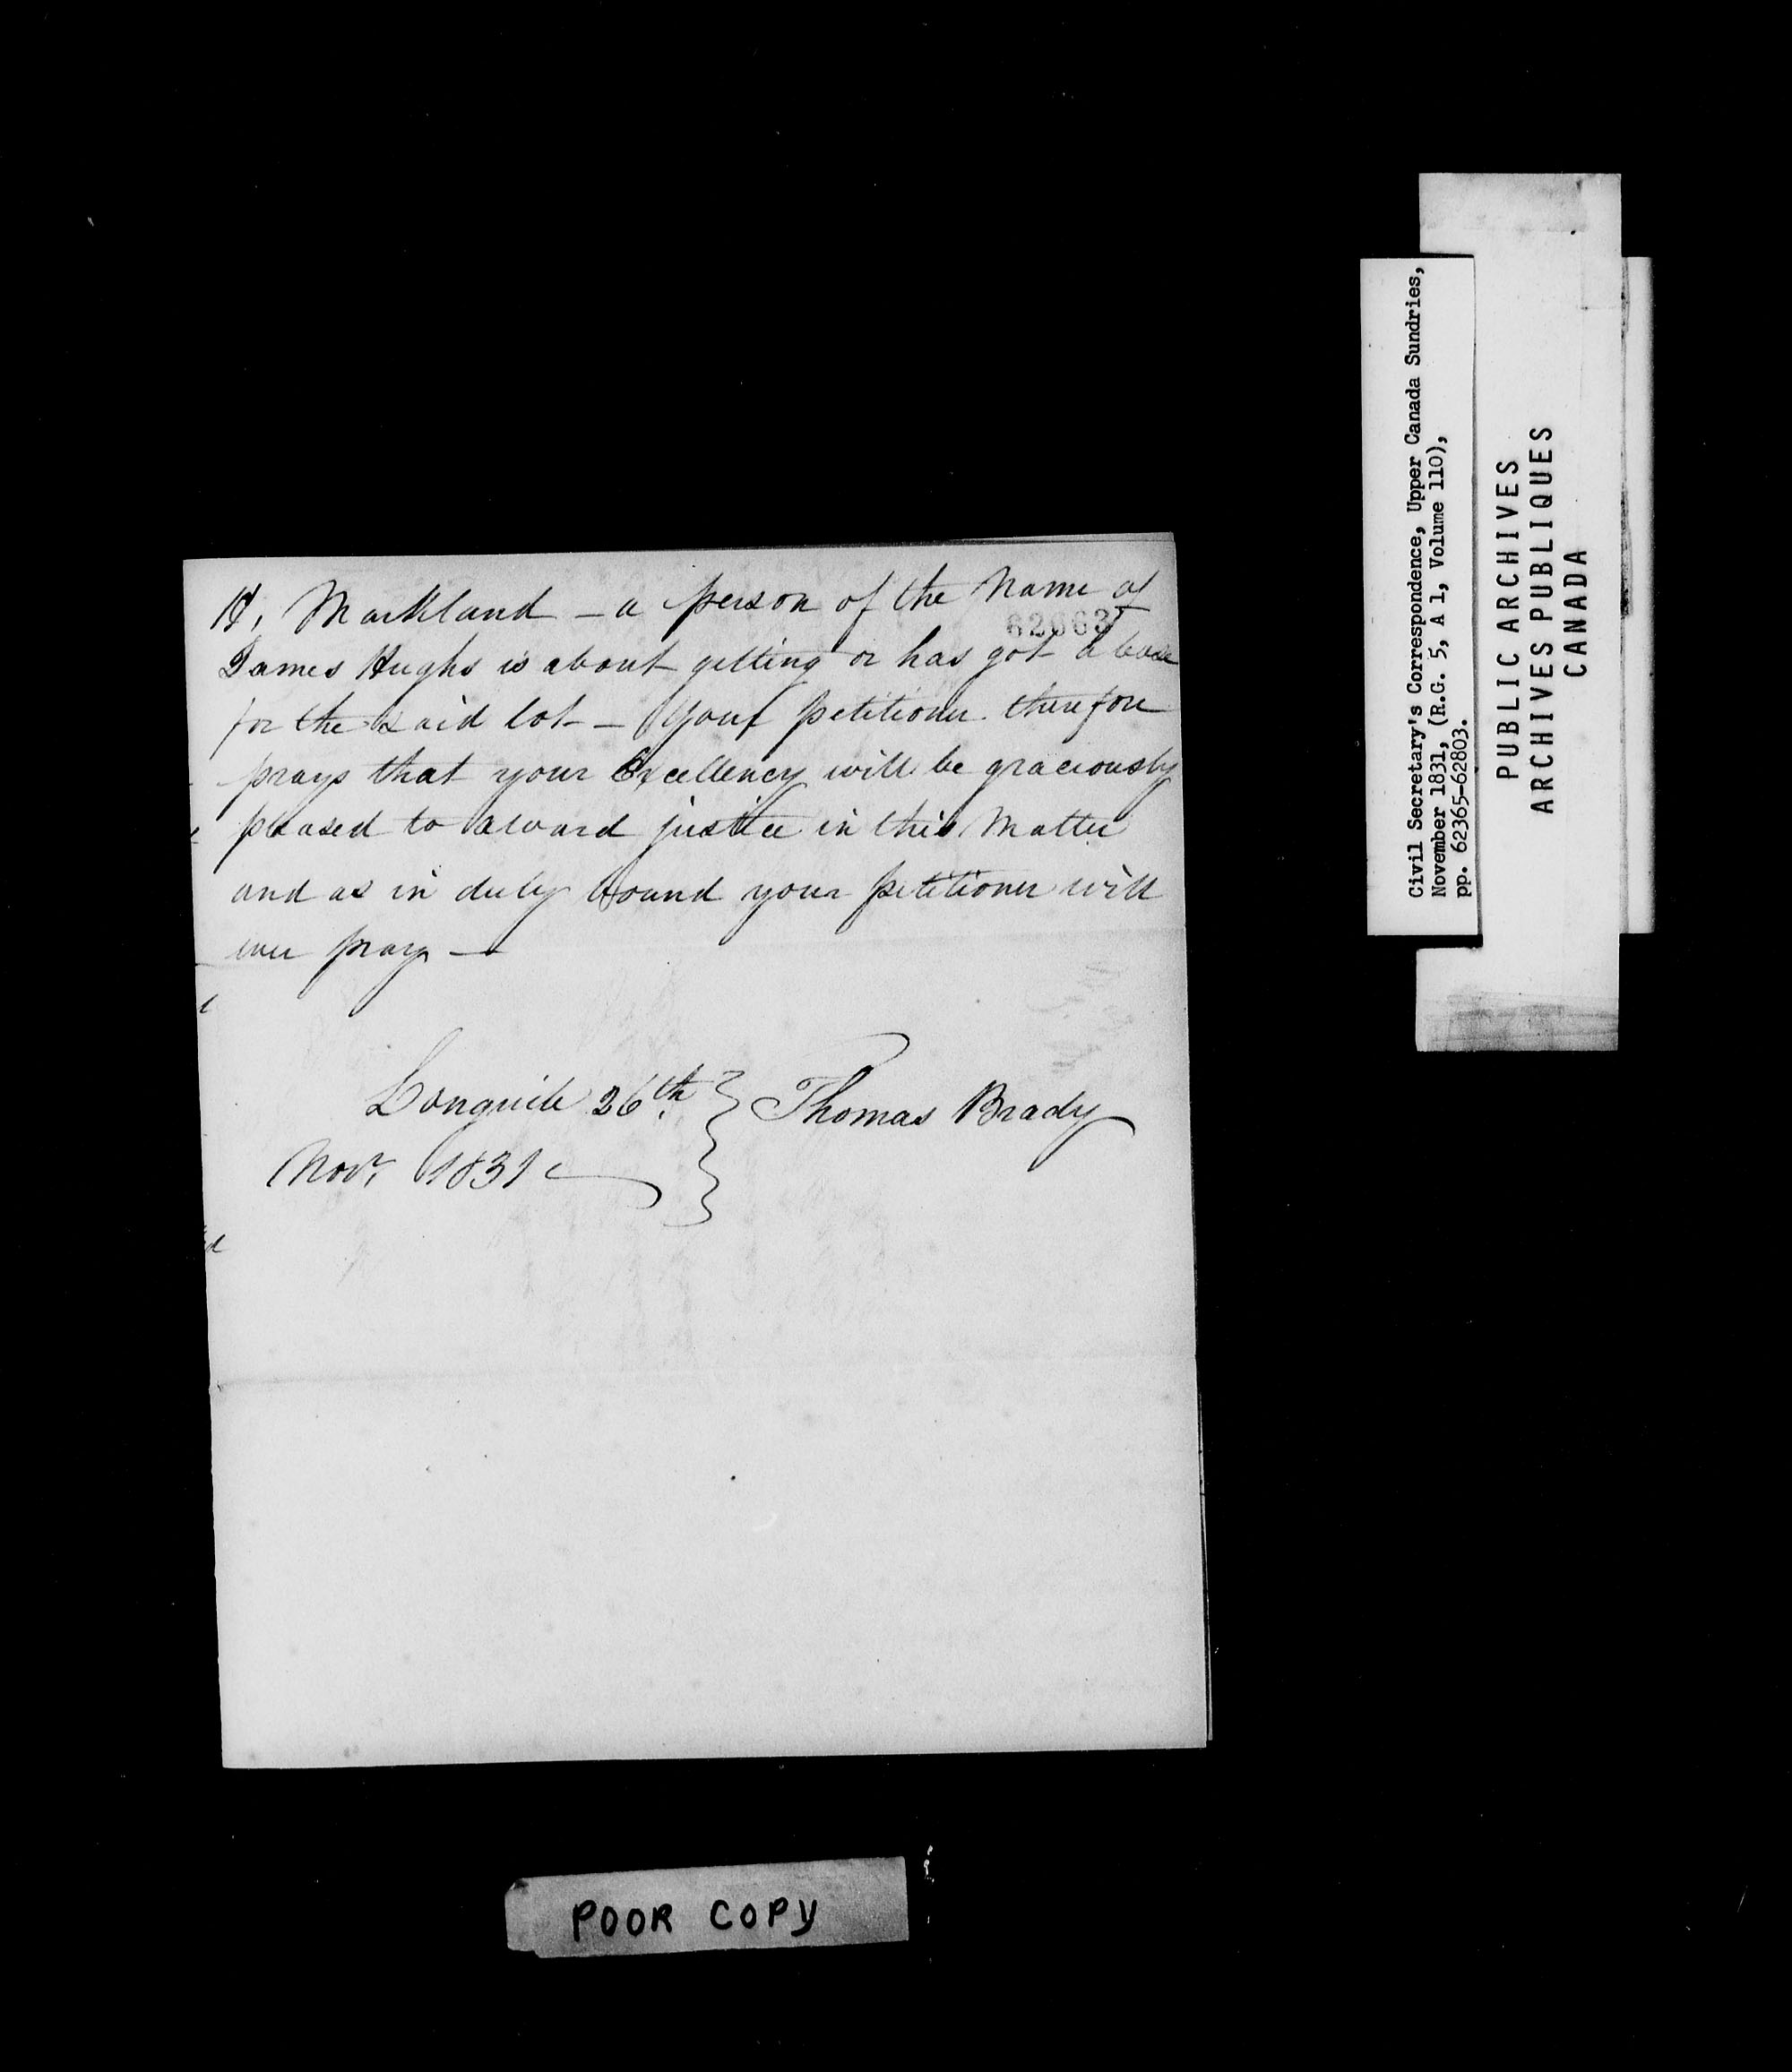 H, Markland – a person of the Name of
62663
James Hughs is about getting or has got a lease
for the said lot – Your petitioner therefore
prays that your Excellency will be graciously
pleased to award justice in this Matter
and as in duty bound your petitioner will
ever pray –
Longueile 26th. Thomas Brady
Novr. 1831
POOR COPY
Civil Secretary's Correspondence, Upper Canada Sundries,
November 1831, (R.G. 5, A 1, Volume 110),
pp. 62365-62803.
PUBLIC ARCHIVES
ARCHIVES PUBLIQUES
CANADA